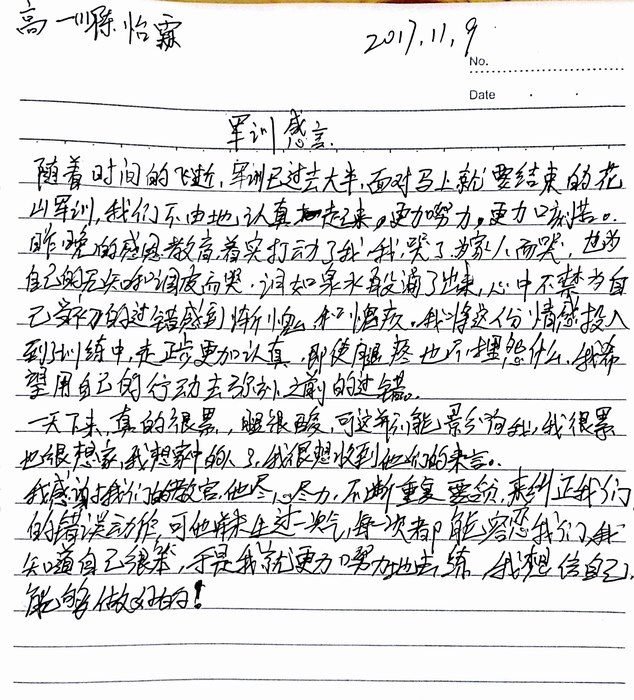 高一川陈怡霖
2017,11,9
No.
Date
军训感言.
随着时间的飞逝,军训已过去大半,面对马上就要结束的花
山军训,我们不由地认真起来,更加努力,更加刻苦。
昨晚的感恩教育着实打动了我,我哭了,为家人而哭,也为
自己的无知和调皮而哭,泪如泉水般涌了出来,心中不禁为自
己之前的过错感到惭愧和愧疚。我将这份情感投入
到了训练中,走正步更加认真,即使腿疼也不埋怨什么,我希
望用自己的行动去弥补之前的过错。
一天下来,真的很累,腿很酸,可这并不能影响我,我很累
也很想家,我想家中的人了,我很想收到他们的来信。
我感谢我们的教官,他尽心尽力,不断重复要领,来纠正我们
的错误动作,可他并未生过一次气,每一次都能容忍我们,我
知道自己很笨,于是我就更加努力地去练,我想信自己,
能够做好的!